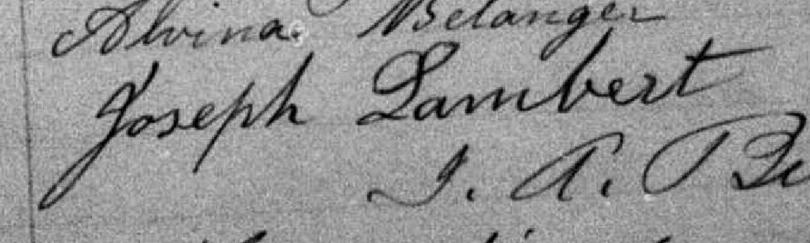 Alvina Belanger
Joseph Lambert
J. A.